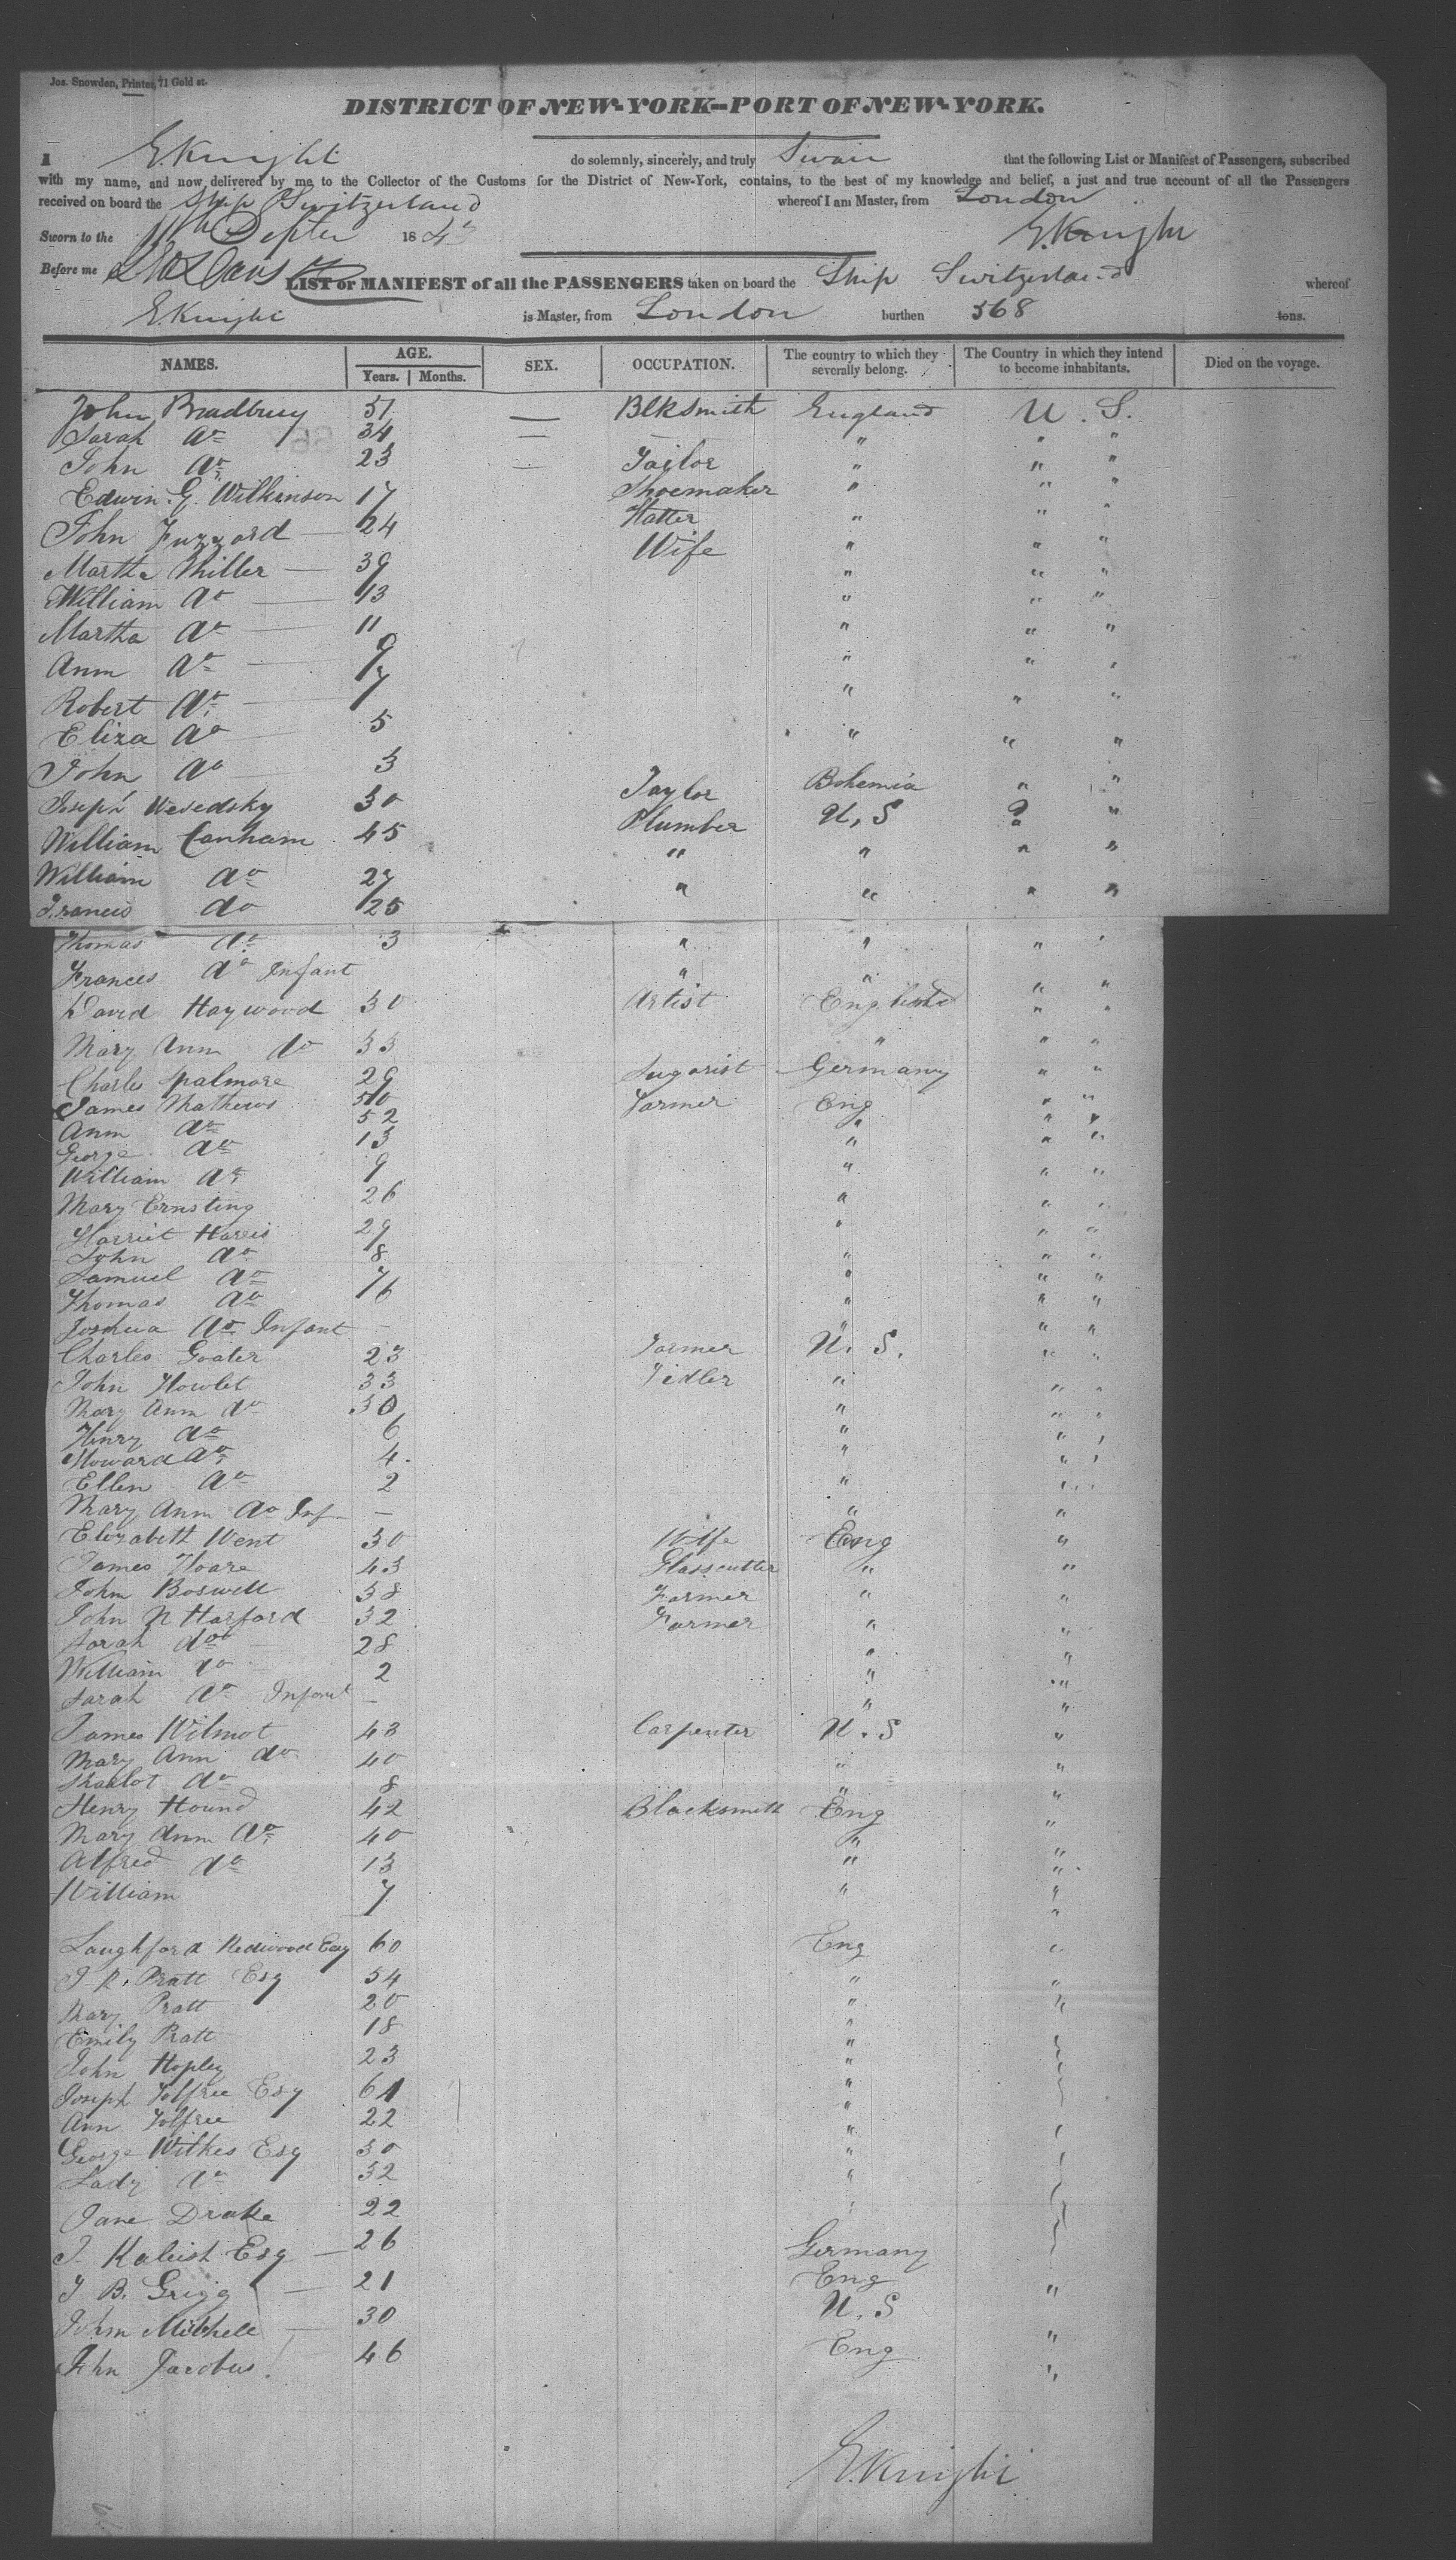 Jos. Snowden, Printer, 71 Gold st.
DISTRICT OF NEW-YORK--PORT OF NEW-YORK.
I E. Knight do solemnly, sincerely, and truly Swair that the following List or Manifest of Passengers, subscribed
with my name, and now delivered by me to the Collector of the Customs for the District of New-York, contains, to the best of my knowledge and belief, a just and true account of all the Passengers
received on board the Ship Switzerland whereof I am Master, from London
Sworn to the 11th Septer 1843 E. Knight
Before me
LIST or MANIFEST of all the PASSENGERS taken on board the Ship Switzerland whereof
E. Knight is Master, from London burthen 568 tons.
NAMES. AGE. Years. Months. SEX. OCCUPATION. The country to which they severally belong. The Country in which they intend to become inhabitants. Died on the voyage.
John Bradbury 51 — Blksmith England U. S.
Sarah do 34 — " " "
John do 23 — Tailor " " "
Edwin G. Wilkinson 17 Shoemaker " " "
John Fuzzard — 24 Hatter " " "
Martha Miller — 39 Wife " " "
William do — 13 " " "
Martha do — 11 " " "
Ann do — 9 " " "
Robert do — 7 " " "
Eliza do — 5 " " "
John do — 3 " " "
Joseph Wesedsky 30 Taylor Bohemia " "
William Canham 45 Plumber U, S " "
William do 27 " " " "
Francis do 25 " " " "
Thomas do 3 " " " "
Frances do Infant " " " "
David Haywood 30 Artist England " "
Mary Ann do 33 " " "
Charles Spalmore 29 Sugarist Germany " "
James Mathews 50 Farmer Eng " "
Ann do 52 " " "
George do 13 " " "
William do 9 " " "
Mary Ernsting 26 " " "
Harriet Harris 29 " " "
John do 8 " " "
Samuel do 7 " " "
Thomas do 6 " " "
Joshua do Infant — " " "
Charles Goater 23 Farmer U. S. " "
John Howlet 33 Fidler " " "
Mary Ann do 30 " " "
Henry do 6 " " "
Howard do 4. " " "
Ellen do 2 " " "
Mary Ann do Inf — " "
Elizabeth Went 30 Wife Eng "
James Hoare 43 Glasscutter " "
John Boswell 38 Farmer " "
John N Harford 32 Farmer " "
Sarah do — 28 " "
William do 2 " "
Sarah do Infant — " "
James Wilmot 43 Carpenter U. S "
Mary Ann do 40 " "
Sharlot do 8 " "
Henry Hound 42 Blacksmith Eng "
Mary Ann do 40 " "
Alfred do 13 " "
William 7 " "
Laughford Redwood Esq 60 Eng "
J. R. Pratt Esq 54 " "
Mary Pratt 20 " "
Emily Pratt 18 "
John Hopley 23 "
Joseph Tolfree Esq 61 "
Ann Tolfree 22 "
George Wilkes Esq 30 "
Lady do 32 "
Jane Drake 22
J. Kaleish Esq — 26 Germany
J B. Grigg — 21 Eng "
John Mitchell — 30 U. S "
John Jacobus. 46 Eng "
E. Knight